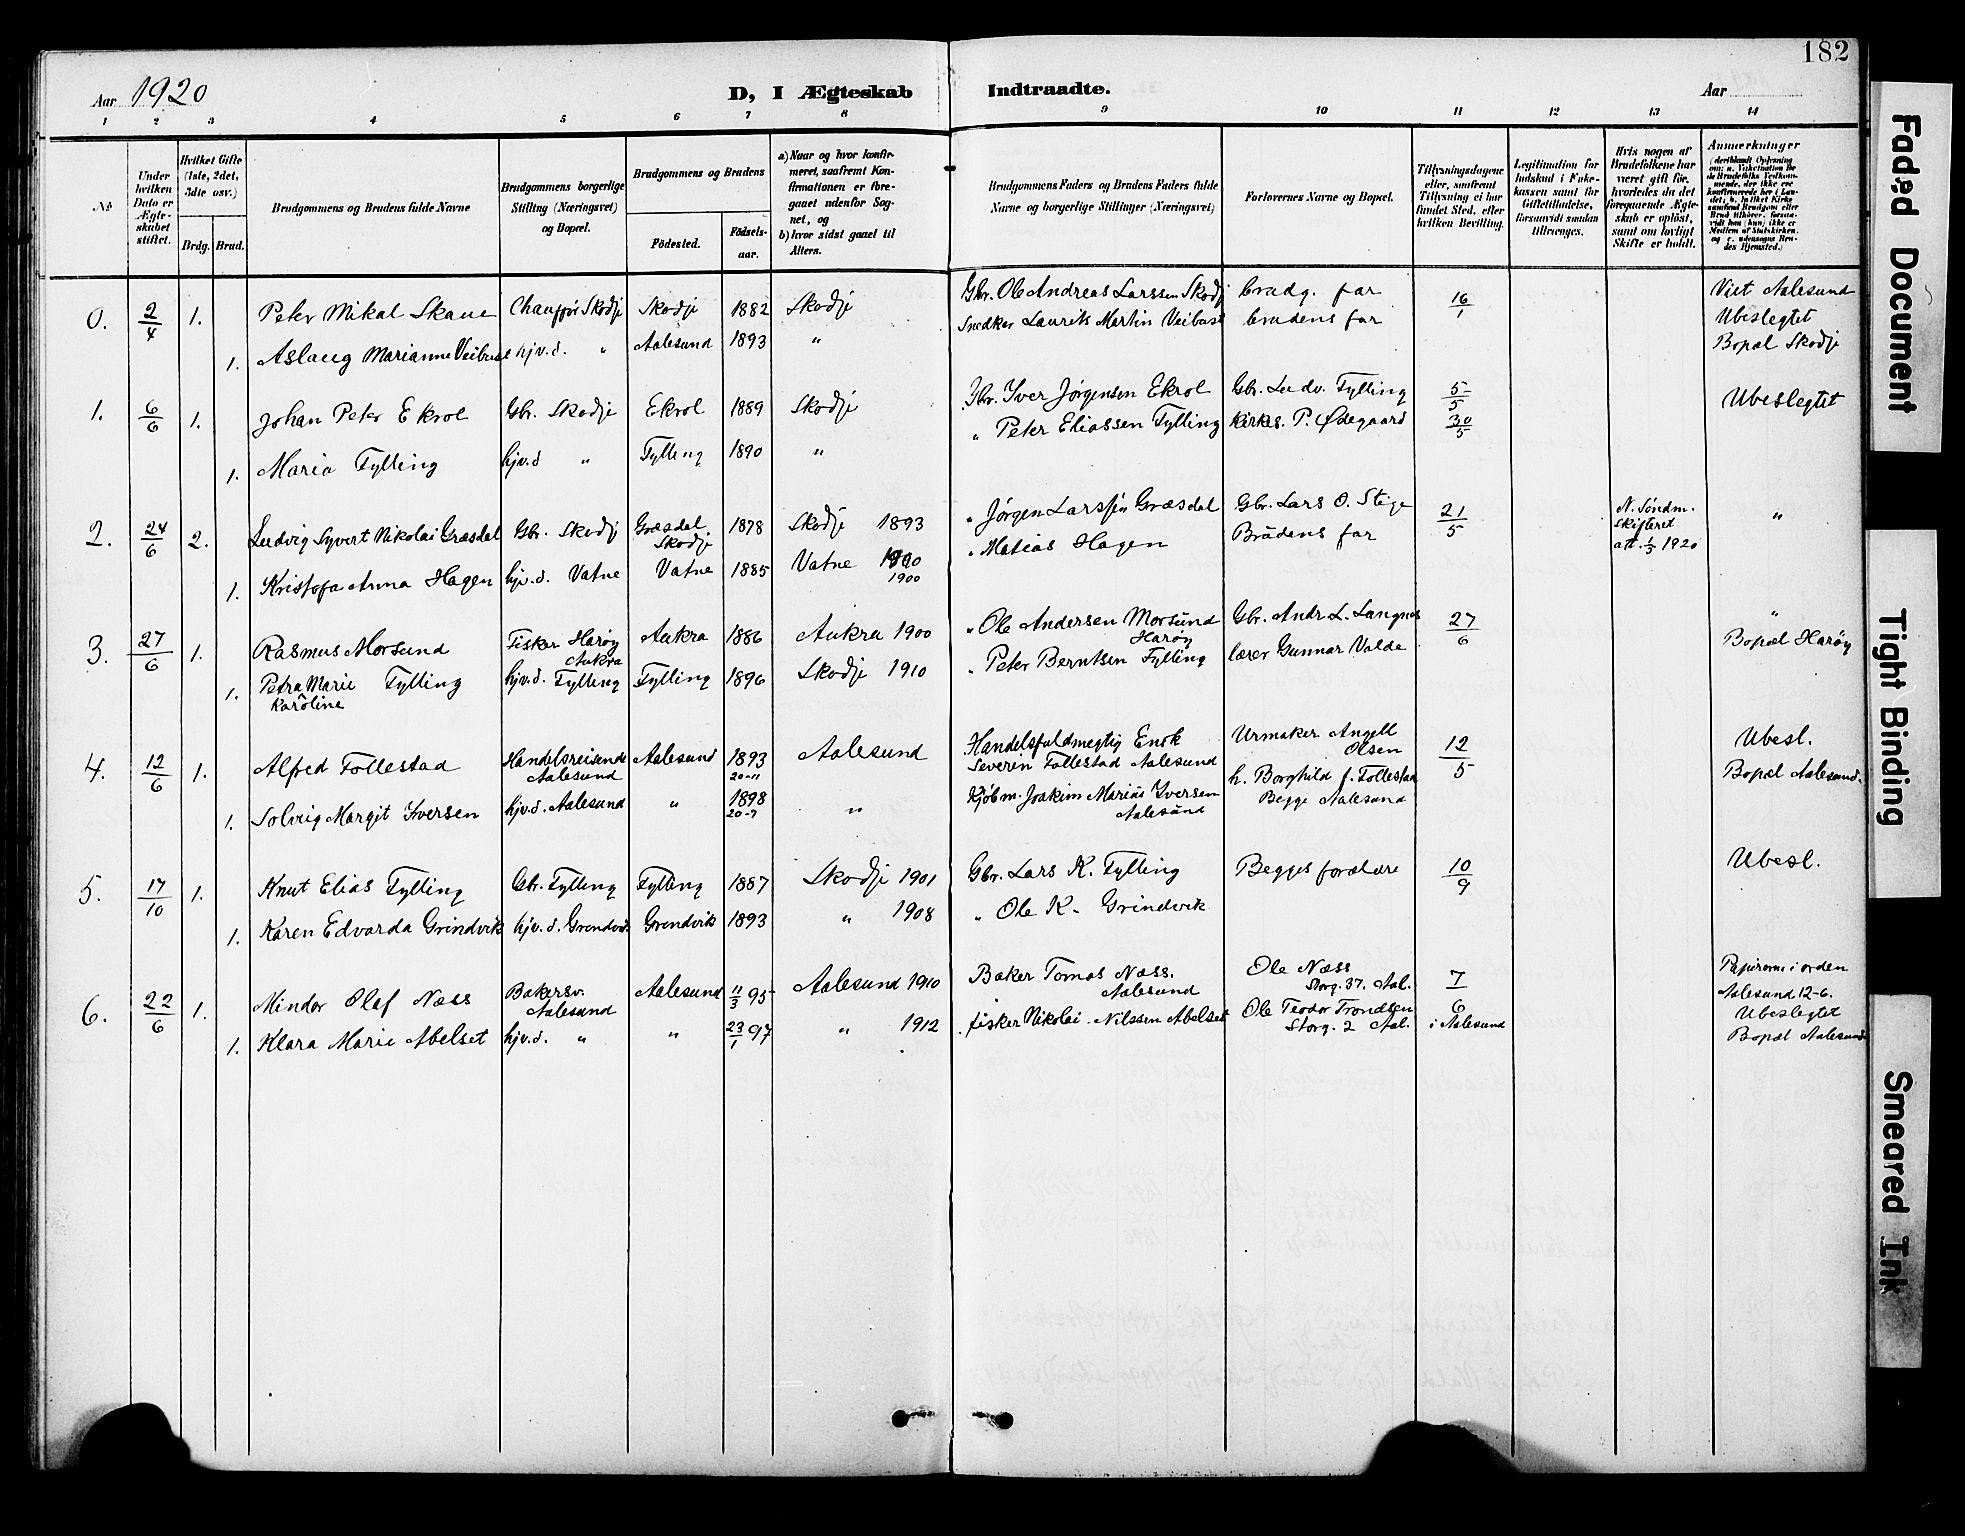 182
Aar 1920
D, I Ægteskab Indtraadte.
Aar
1 2 3 4 5 6 7 8 9 10 11 12 13 14
No
Under hvilken Dato er Ægteskabet stiftet.
Hvilket Gifte (1ste, 2det, 3die osv.)
Brdg. Brud.
Brudgommens og Brudens fulde Navne
Brudgommens borgerlige Stilling (Næringsvei) og Bopæl.
Brudgommens og Brudens
Fødested.
Fødselsaar.
a) Naar og hvor konfirmeret, saafremt Konfirmationen er foregaaet udenfor Sognet, og
b) hvor sidst gaaet til Alters.
Brudgommens Faders og Brudens Faders fulde Navne og borgerlige Stillinger (Næringsvei)
Forlovernes Navne og Bopæl.
Tillysningsdagene eller, saafremt Tillysning ei har fundet Sted, efter hvilken Bevilling.
Legitimation for Indskud i Enkekassen samt for Giftetilladelse, forsaavidt saadan tiltrænges.
Hvis nogen af Brudefolkene har været gift før, hvorledes da det foregaaende Ægteskab er opløst, samt om lovligt Skifte er holdt.
Anmærkninger
0. 2/4 1. Peter Mikal Skaue Chauffør Skodje Skodje 1882 Skodje Gbr. Ole Andreas Larssen Skodj brudg. far 16/1 Viet Aalesund
Snedker Laurits Martin Veibust brudens far Ubeslegtet
1. Aslaug Marianne Veibust hjv.d. " Aalesund 1893 " Bopæl Skodje
1. 6/6 1. Johan Peter Ekrol Gbr. Skodje Ekrol 1889 Skodje Gbr. Iver Jørgensen Ekrol Gbr. Ludv. Fylling 5/5 Ubeslegtet
" Peter Eliassen Fylling Kirkes. P. Ødegaard 30/5
1. Maria Fylling hjv.d " Fylling 1890 "
2. 24/6 2. Ludvig Syvert Nikolai Græsdal Gbr. Skodj Græsdal Skodje 1878 Skodje 1893 " Jørgen Larssen Græsdal Gbr. Lars O. Stige 21/5 N. Søndm. Skifteret att. 1/3 1920 "
" Matias Hagen Brudens far
1. Kristofa Anna Hagen hjv.d. Vatne Vatne 1885 Vatne 1900
1900
3. 27/6 1. Rasmus Morsund Fisker Harøy Aukra Aukra 1886 Aukra 1900 " Ole Andersen Morsund Harøy Gbr. Andr. L. Langnes 27/6 "
Bopæl Harøy
1. Petra Marie Karoline Fylling hjv.d. Fylling Fylling 1896 Skodje 1910 " Peter Berntsen Fylling lærer Gunnar Valde
4. 12/6 1. Alfred Follestad Handelsreisende Aalesund Aalesund 1893 20-11 Aalesund Handelsfuldmegtig Enok Severen Follestad Aalesund Urmaker Angell Olsen 12/5 Ubesl.
Bopæl Aalesund.
1. Solveig Margit Iversen hjv.d. Aalesund " 1898 20-7 " Kjøbm. Joakim Marius Iversen Aalesund h. Borghild f. Follestad
Begge Aalesund
5. 17/10 1. Knut Elias Fylling Gbr. Fylling Fylling 1887 Skodje 1901 Gbr. Lars K. Fylling Begges forældre 10/9 Ubesl.
1. Karen Edvarda Grindvik hjv.d. Grendvik Grendvik 1893 " 1908 " Ole K. Grindvik
6. 22/6 1. Mindor Olaf Næss Bakersv. Aalesund Aalesund 11/3 95 Aalesund 1910 Baker Tomas Næss. Aalesund Ole Næss Storg. 37. Aal. 7/6 i Aalesund Papirerne i orden
Aalesund 12-6.
Ubeslegtet
Bopæl Aalesund
1. Klara Marie Abelset hjv.d. " " 23/1 97 " 1912 fisker Nikolai Nilssen Abelset Ole Teodor Trondsen Storg. 2 Aal.
Faded Document
Tight Binding
Smeared Ink